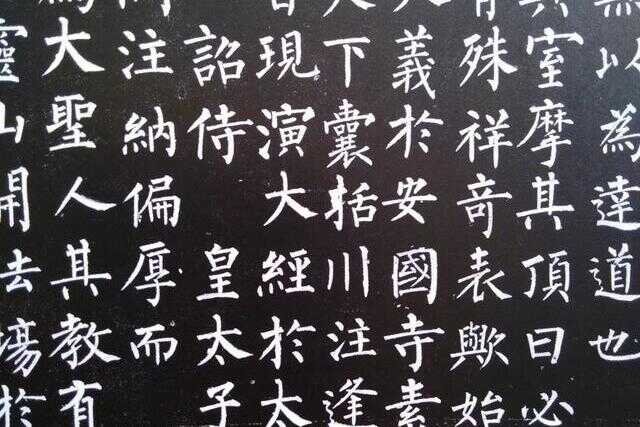 無以為達道也
其室摩其頂曰必
有殊祥奇表歟始
大義於安國寺素
天下囊括川注逢
皆現演大經於太
詔侍 皇太子
問注納偏厚而
為大聖人其教有
靈山開法場於